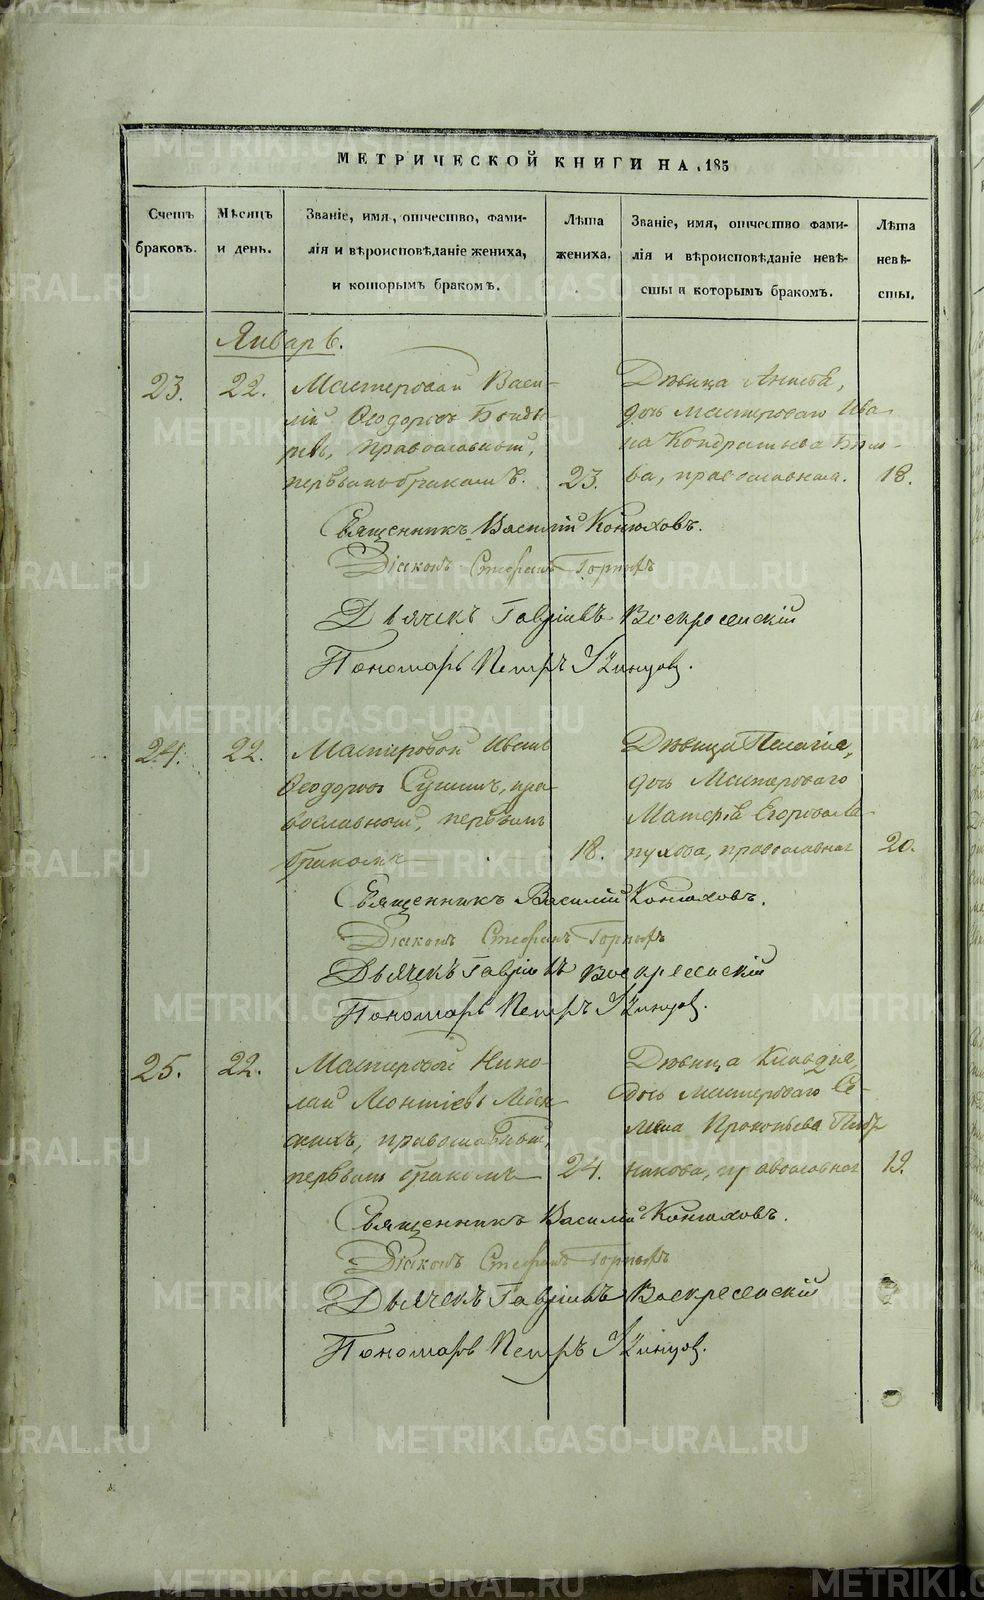 МЕТРИЧЕСКОЙ КНИГИ НА 185
Счетъ браковъ.
Мѣсяцъ и день.
Званіе, имя, отчество, фами-
лія и вѣроисповѣданіе жениха,
и которымъ бракомъ.
Лѣта жениха.
Званіе, имя, отчество фами-
лія и вѣроисповѣданіе невѣ-
сты и которымъ бракомъ.
Лѣта невѣ-
сты.
Январь.
23. 22. Мастеровой Васи-
лій Ѳеодоровъ
православный,
первымъ бракомъ. 23.
Дѣвица Анисья,
дочь мастероваго Ива-
на Кондратьева
ва, православная. 18.
Священникъ Василій Конюховъ.
Діаконъ Стефанъ Горныхъ
Дьячекъ Гавріилъ Воскресенскій
Пономарь Петръ
24. 22. Мастеровой Иванъ
Ѳеодоровъ пра
вославный, первымъ
бракомъ 18.
Дѣвица Пелагія,
дочь Мастероваго
Матвѣя Егорова Ла
пухова, православная 20.
Священникъ Василій Конюховъ.
Діаконъ Стефанъ Горныхъ
Дьячекъ Гавріилъ Воскресенскій
Пономарь Петръ
25. 22. Мастеровой Нико-
лай Леонтіевъ
православный,
первымъ бракомъ 24.
Дѣвица Клавдія,
дочь мастероваго Се-
мена Прокопьева
никова, православная 19.
Священникъ Василій Конюховъ.
Діаконъ Стефанъ Горныхъ
Дьячекъ Гавріилъ Воскресенскій
Пономарь Петръ
METRIKI.GASO-URAL.RU